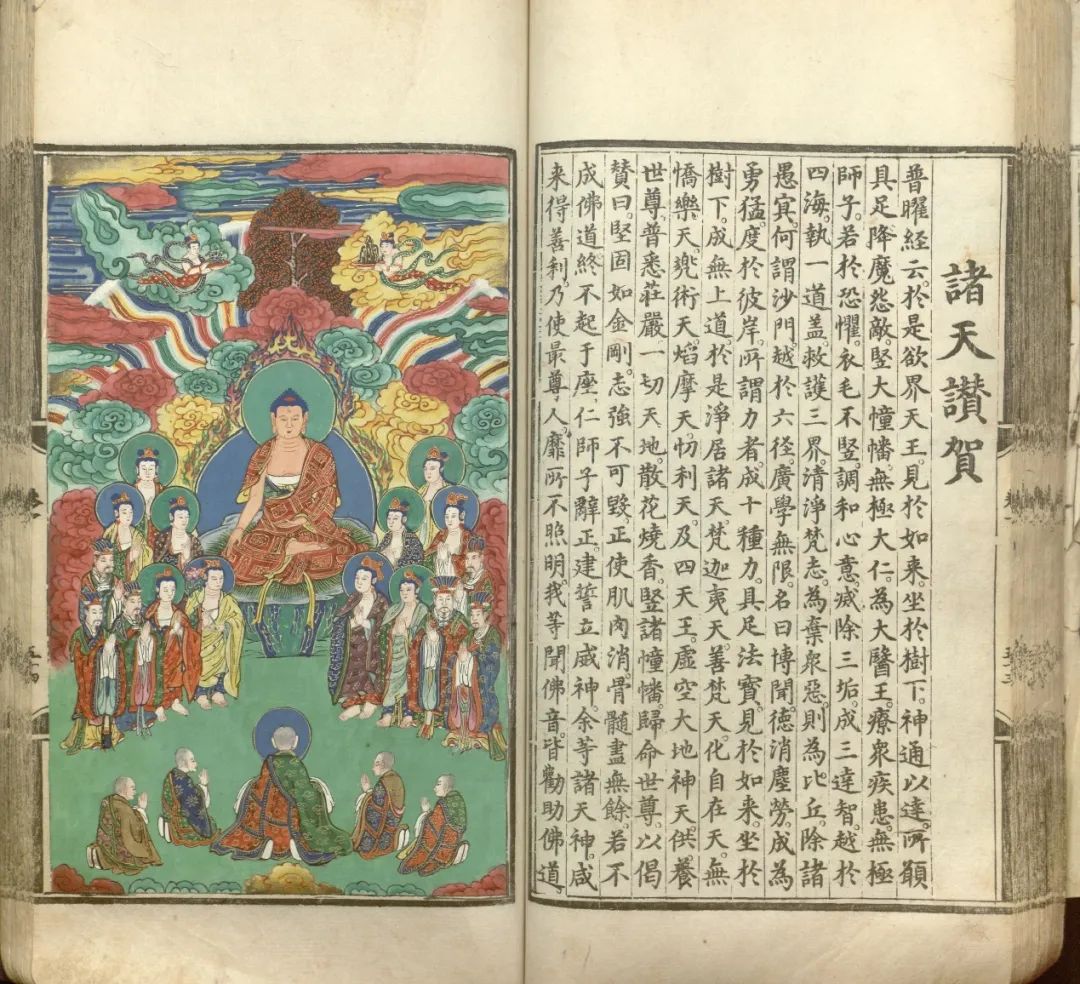 諸天讚賀
普曜経云。於是欲界天王。見於如來。坐於樹下。神通以達。所願
具足。降魔怨敵。竪大幢幡。無極大仁。為大醫王。療衆疾患。無極
師子。若於恐懼。衣毛不竪。調和心意。滅除三垢。成三達智。越於
四海。執一道盖。救護三界。清淨梵志。為棄衆惡。則為比丘。除諸
愚㝠。何謂沙門。越於六径。廣學無限。名曰博聞。德消塵勞。成為
勇猛。度於彼岸。所謂力者。成十種力。具足法寶。見於如來。坐於
樹下。成無上道。於是淨居諸天。梵迦夷天。善梵天。化自在天。無
憍樂天。兠術天。焰摩天。忉利天。及四天王。虛空大地神天。供養
世尊。普悉莊嚴一切天地。散花燒香。竪諸幢幡。歸命世尊。以偈
賛曰。堅固如金剛。志強不可毀。正使肌肉消。骨髓盡無餘。若不
成佛道。終不起于座。仁師子辭正。建誓立威神。余等諸天神。咸
来得善利。乃使最尊人。靡所不照明。我等聞佛音。皆勸助佛道